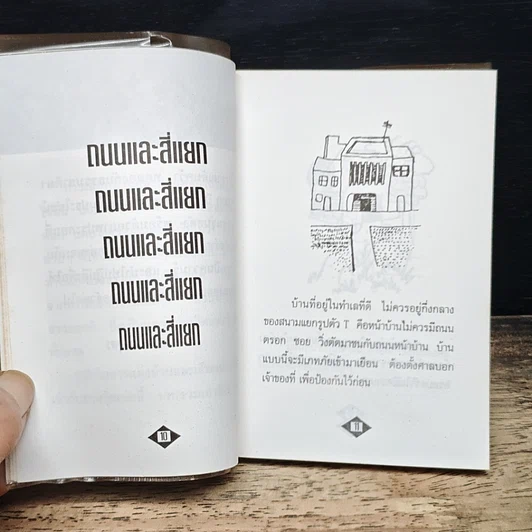 ถนนและสี่แยก
ถนนและสี่แยก
ถนนและสี่แยก
ถนนและสี่แยก
ถนนและสี่แยก
10
บ้านที่อยู่ในทำเลที่ดี ไม่ควรอยู่กึ่งกลาง
ของสนามแยกรูปตัว T คือหน้าบ้านไม่ควรมีถนน
ตรอก ซอย วิ่งตัดมาชนกับถนนหน้าบ้าน บ้าน
แบบนี้จะมีเภทภัยเข้ามาเยือน ต้องตั้งศาลบอก
เจ้าของที่ เพื่อป้องกันไว้ก่อน
11